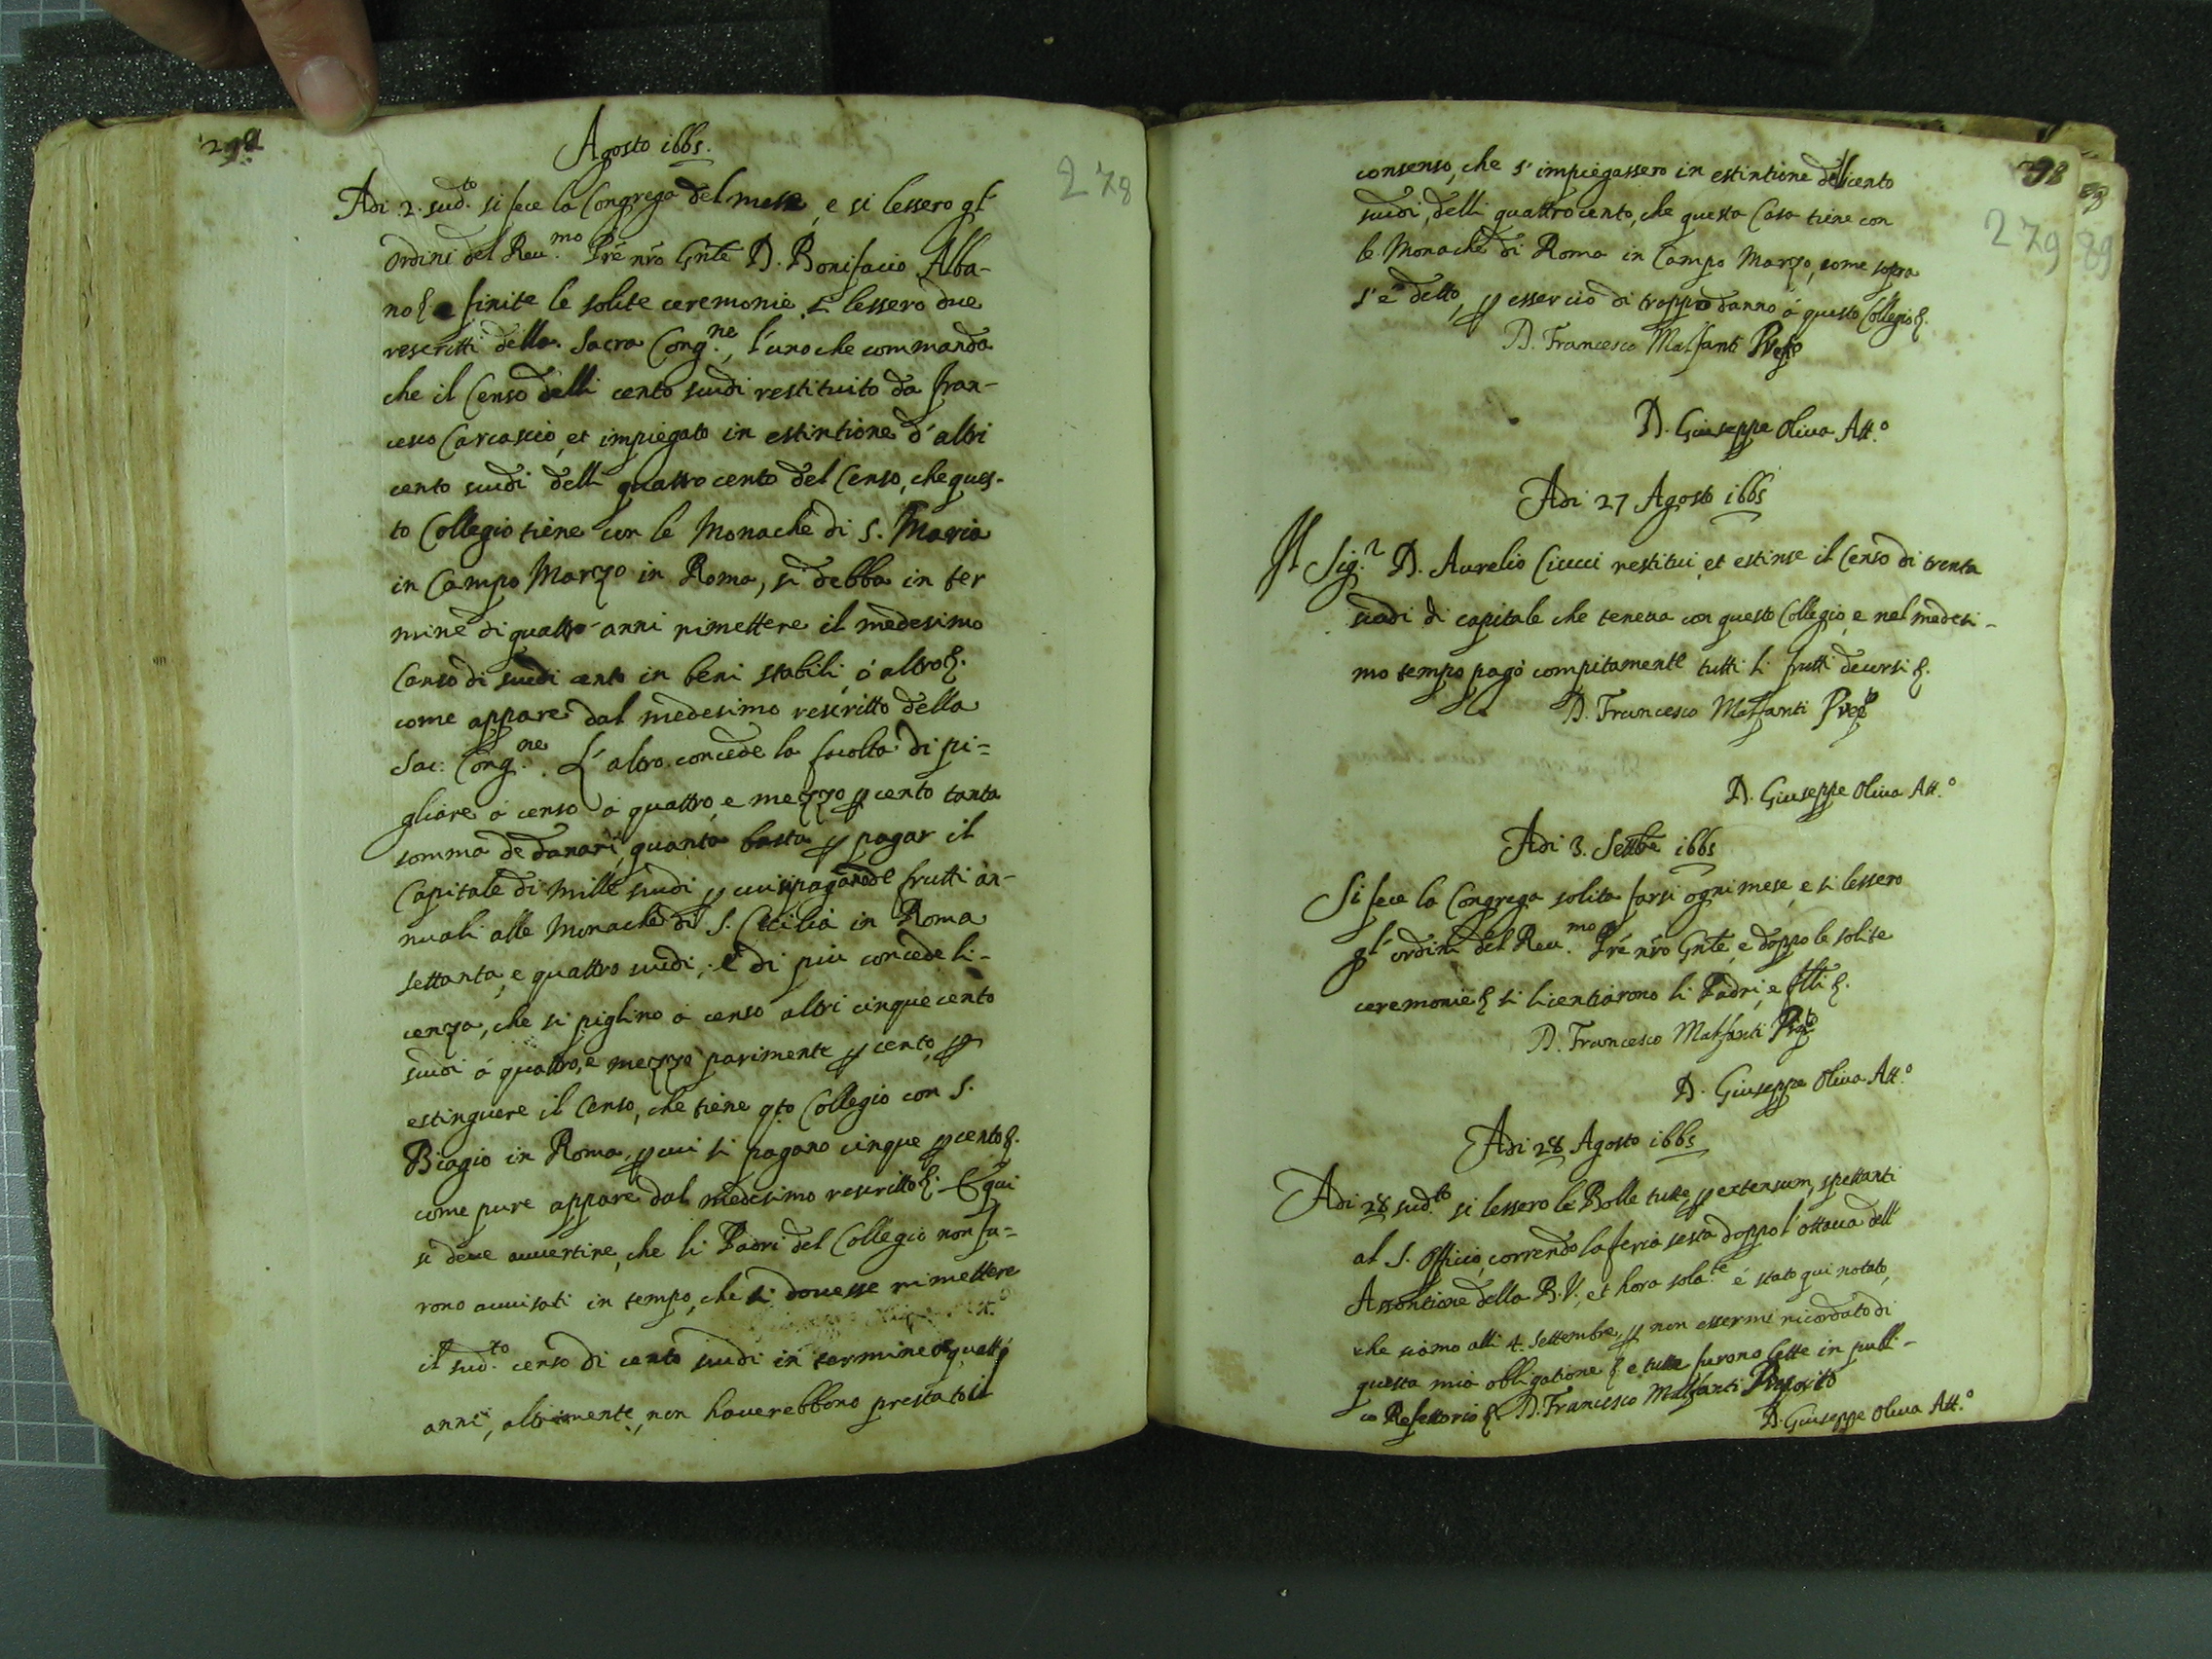 Agosto 1665.
278
Adi 2. sud.to si fece la Congrega del mese, e si lessero gl'
Ordini del Reu.mo Prê nrõ Gnŕle D. Bonifacio Alba-
no & e finite le solite ceremonie si lessero due
rescritti della Sacra Cong.ne, l'uno che commanda
che il Censo delli cento scudi restituito da Fran-
cesco Carcascio, et impiegato in estintione d'altri
cento scudi delli quattro cento del Censo, che ques-
to Collegio tiene con le Monache di S. Maria
in Campo Marzo in Roma, si debba in ter
mine di quattro anni rimettere il medesimo
Censo di scudi cento in beni stabili, ó altro &.
come appare dal medesimo rescritto della
Sac: Cong.ne. L'altro concede la facoltà di pi=
gliare á censo á quattro, e mezzo p cento tanta
somma de danari, quanta basta p pagar il
Capitale di mille scudi p cui si pagano de frutti an-
nuali alle Monache di S. Cecilia in Roma
settanta, e quattro scudi; e di più concede li-
cenza, che si piglino á censo altri cinque cento
scudi á quattro, e mezzo parimente p cento, p
estinguere il Censo, che tiene q.to Collegio con S.
Biagio in Roma, p cui si pagano cinque p cento &.
come pure appare dal medesimo rescritto &. E qui
si deve auuertire, che li Padri del Collegio non fu=
rono auuisati in tempo, che si douesse rimettere
il sud.to censo di cento scudi in termine di quattro
anni, altrimente, non hauerebbono prestato il
279
89
consenso, che s'impiegassero in estintione delli cento
scudi, delli quattrocento, che questa Casa tiene con
le Monache di Roma in Campo Marzo, come sopra
s'é detto, p esser ciò di troppo danno á questo Collegio &.
D. Francesco Malfanti Prep.to
D. Giuseppe Oliua Att.o
Adi 27 Agosto 1665
Il Sig.r D. Aurelio Ciucci restituì, et estinse il Censo di trenta
scudi di capitale che teneua con questo Collegio, e nel medesi-
mo tempo pagò compitamente tutti li frutti decorsi &.
D. Francesco Malfanti Prep.to
D. Giuseppe Oliua Att.o
Adi 3. Settbre 1665
Si fece la Congrega solita farsi ogni mese, e si lessero
gl' ordini del Reu.mo Prê nrõ Gnŕle, e doppo le solite
ceremonie & si licentiarono li Padri, e flli &.
D. Francesco Malfanti Prep.to
D. Giuseppe Oliua Att.o
Adi 28 Agosto 1665
Adi 28 sud.to si lessero le Bolle tutte p extensum, spettanti
al S. Officio, correndo la feria sesta doppo l'ottaua dell'
Assontione della B. V., et hora sola.te é stato qui notato,
che siamo alli 4. Settembre, p non essermi ricordato di
questa mia obbligatione & e tutte furono lette in publi-
co Refettorio &. D. Francesco Malfanti Preposito
D. Giuseppe Oliua Att.o